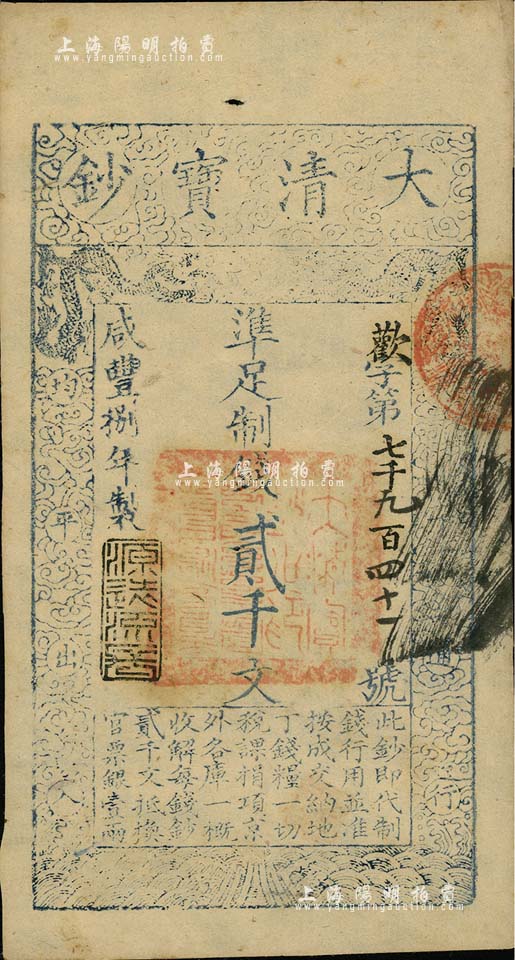 上海陽明拍賣
www.yangmingauction.com
大清寶鈔
歡字第七千九百四十一號
準足制錢貳千文
咸豐捌年製
源遠流長
均平出入
行
此鈔即代制
錢行用並准
按成交納地
丁錢糧一切
稅課捐項京
外各庫一概
收解每錢鈔
貳千文抵換
官票銀壹兩
上海陽明拍賣
www.yangmingauction.com
上海陽明拍賣
www.yangmingauction.com